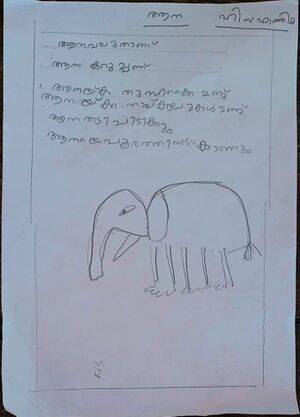 ആന ഹിസ ഫാത്തിമ
ആന വലുതാണ്
ആന കറുപ്പണ്
ആനയ്ക്ക തുമ്പിക്കൈ ഉണ്ട്
ആനയ്ക്ക നാല് കാലുകൾ ഉണ്ട്
ആന തടി പിടിക്കും
ആനയെ പൂരത്തിന് കാണും